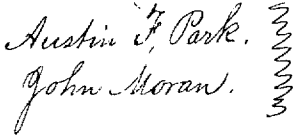 Austin F. Park.
John Moran.